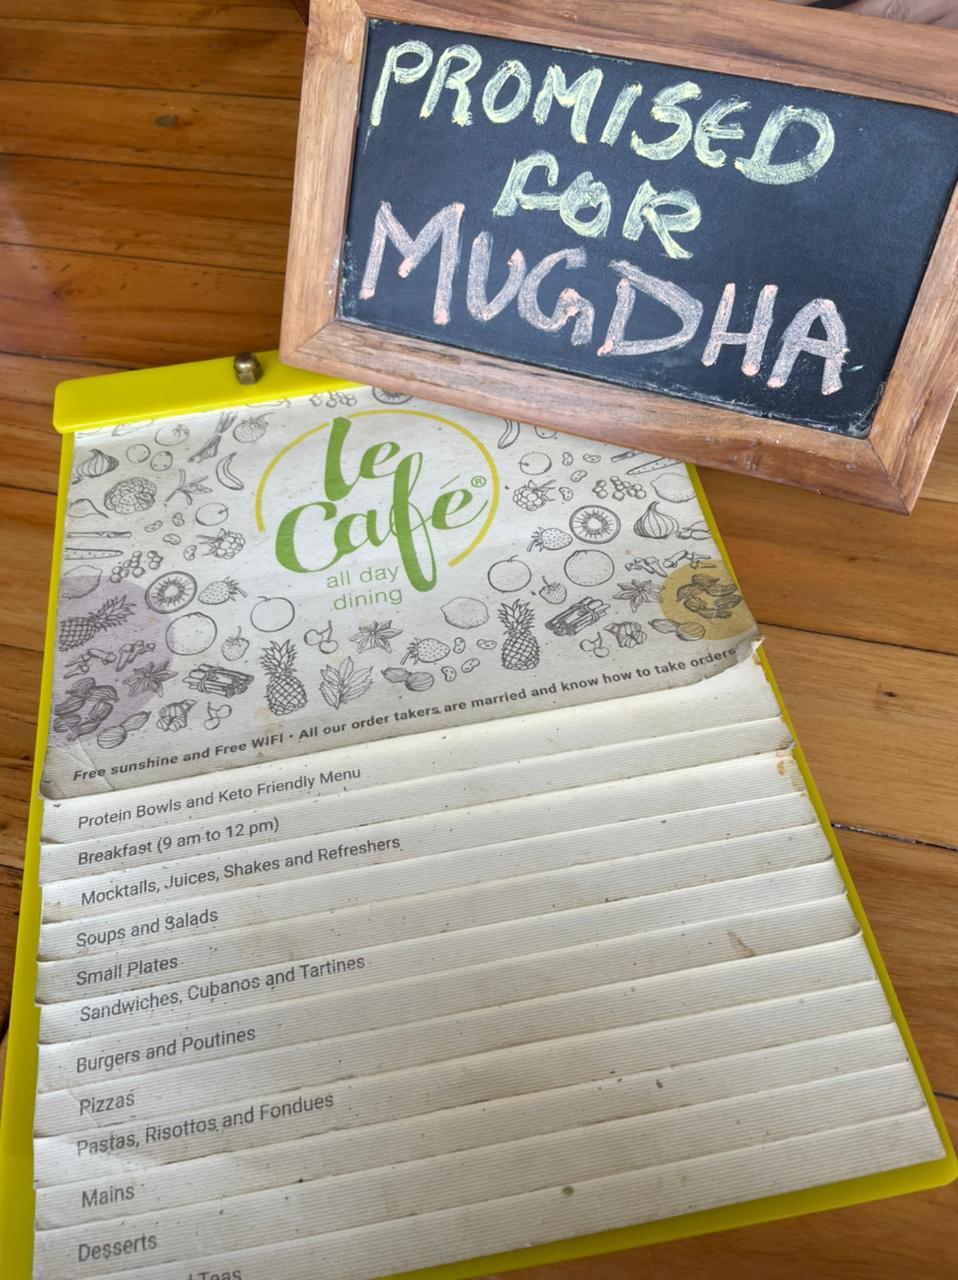 PROMISED
FOR
MUGDHA
le
Café®
all day
dining
Free sunshine and Free WIFI • All our order takers are married and know how to take orders
Protein Bowls and Keto Friendly Menu
Breakfast (9 am to 12 pm)
Mocktails, Juices, Shakes and Refreshers
Soups and Salads
Small Plates
Sandwiches, Cubanos and Tartines
Burgers and Poutines
Pizzas
Pastas, Risottos and Fondues
Mains
Desserts
Teas